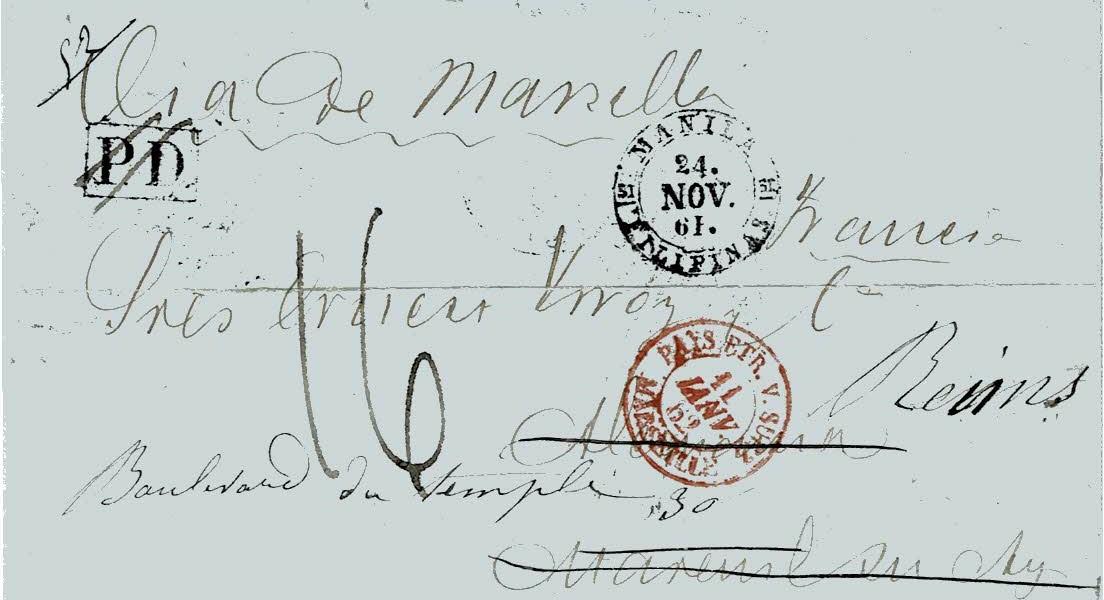 Via de Marsella
P.D
MANILA
24.
NOV.
61.
51 51
FILIPINAS
Francia
Sres
Ca
16
PAYS ETR. V. SUEZ
11
JANV
62
MARSEILLE
Reims
Boulevard du temple 30
Mareuil sur Ay